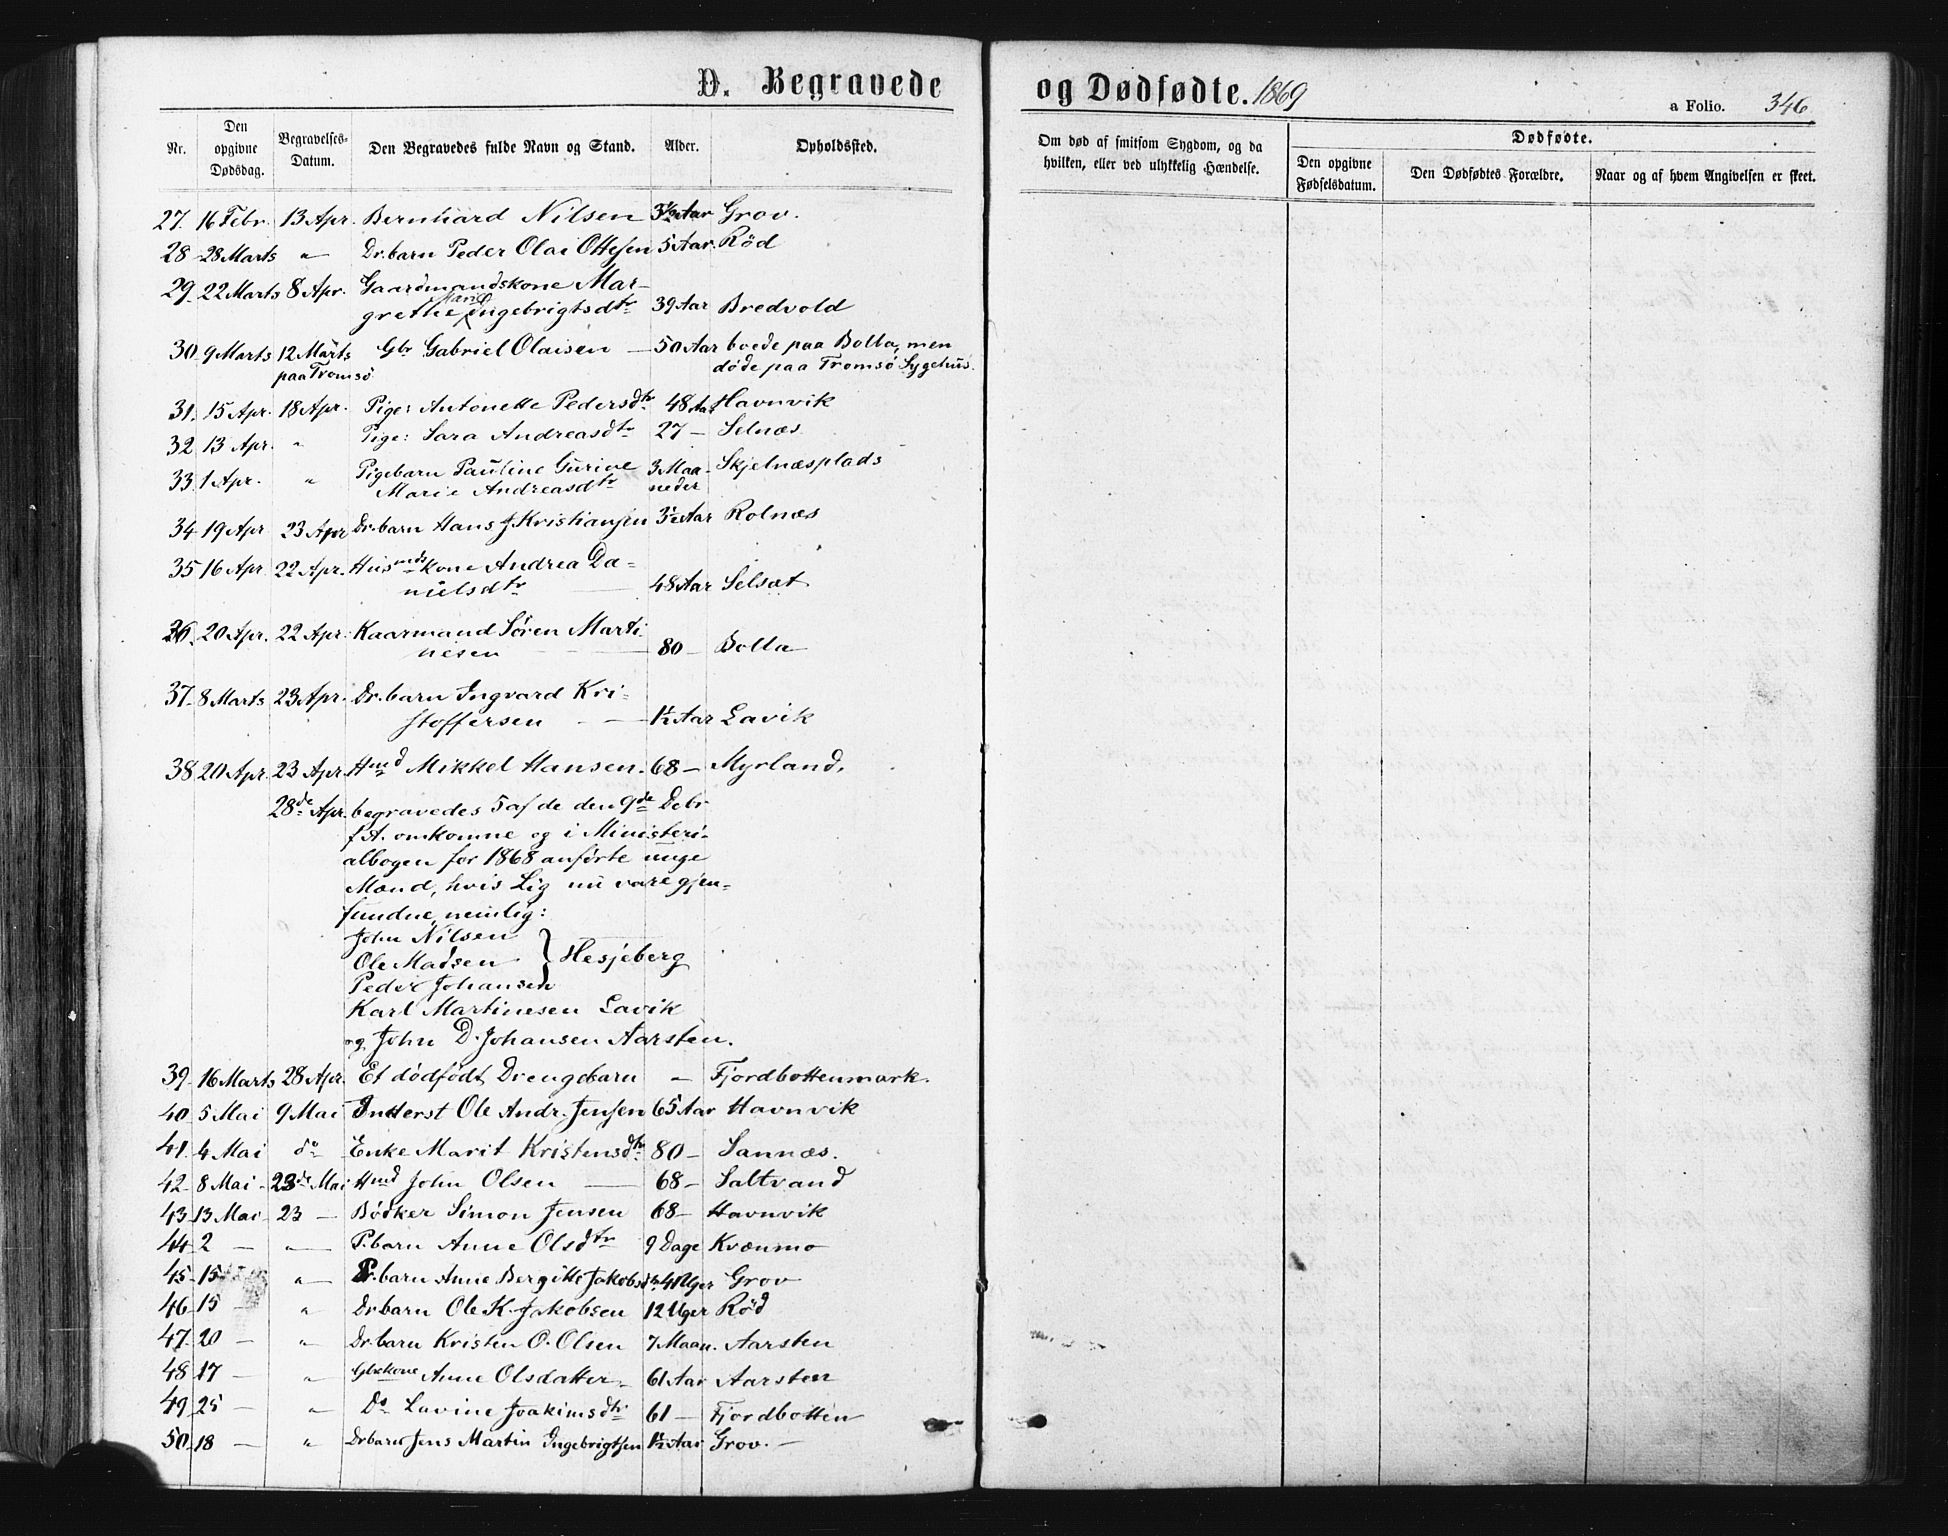 D. Begravede
og Dødfødte. 1869
a Folio. 346.
Nr.
Den opgivne Dødsdag.
Begravelses-Datum.
Den Begravedes fulde Navn og Stand.
Alder.
Opholdssted.
Om død af smitsom Sygdom, og da hvilken, eller ved ulykkelig Hændelse.
Dødfødte.
Den opgivne Fødselsdatum.
Den Dødfødtes Forældre.
Naar og af hvem Angivelsen er skeet.
27. 16 Febr. 13 Apr. Bernhard Nilsen 3½ Aar Grov.
28 28 Marts " Dr.barn Peder Olai Ottesen 5 Aar. Röd
29. 22 Marts 8 Apr. Gaardmandskone Mar-
grethe Ingebrigtsdtr 39 Aar Bredvold
30. 9 Marts 12 Marts Gbr Gabriel Olaisen — 50 Aar boede paa Bolla, men
paa Tromsö döde paa Tromsö Sygehus.
31. 15 Apr. 18 Apr. Pige: Antonette Pedersdtr 48 Aar Havnvik
32 13 Apr. " Pige: Sara Andreasdtr 27 — Selnæs
33. 1 Apr. " Pigebarn Pauline Gurine 3 Maa- Skjelnæsplads
Marie Andreasdtr neder
34 19 Apr 23 Apr Dr.barn Hans J Kristiansen 3½ Aar Rolnæs
35 16 Apr 22 Apr. Husmdskone Andrea Da-
nielsdtr — 48 Aar Selsæt
36. 20 Apr. 22 Apr. Kaarmand Sören Marti-
nesen — 80 — Bolla
37. 8 Marts 23 Apr. Dr.barn Ingvard Kri-
stoffersen — 1½ Aar Lavik
38 20 Apr. 23 Apr. Hmd Mikkel Hansen. 68 — Myrland.
28de Apr. begravedes 5 af de den 9de Debr
f.A. omkomne og i Ministeri-
albogen for 1868 anförte unge
Mænd, hvis Lig nu vare gjen-
fundne, nemlig:
John Nilsen
Ole Madsen } Hesjeberg
Peder Johansen
Karl Martinesen Lavik
og John D. Johansen Aarsten.
39. 16 Marts 28 Apr. Et dödfödt Drengebarn — Fjordbottenmark.
40. 5 Mai 9 Mai Inderst Ole Andr. Jensen 65 Aar Havnvik
41. 4 Mai do Enke Marit Kristensdtr 80 — Sannæs.
42 8 Mai 23de Mai Hmd John Olsen — 68 — Saltvand
43. 13 Mai 23 — Bödker Simon Jensen 68 — Havnvik
44 2 — " — P.barn Anne Olsdtr 9 Dage Kvænmo
45 15 " — P.barn Anne Bergitte Jakobsdtr. 4 Uger Grov
46 15 — " Dr.barn Ole K. Jakobsen 12 Uger Röd
47. 20 — " Dr.barn Kristen O. Olsen 7 Maan. Aarsten
48 17 — " Gbrkone Anne Olsdatter 61 Aar Aarsten
49 25 — " Do Lavine Joakimsdtr 61 — Fjordbotten
50. 18 — " Dr.barn Jens Martin Ingebrigtsen 1½ Aar Grov. —